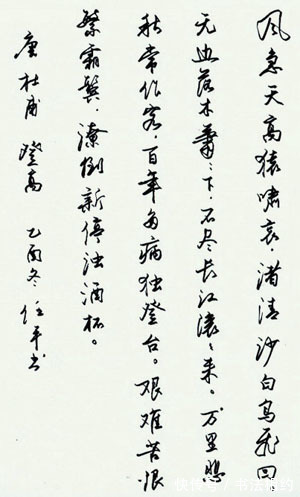 风急天高猿啸哀，渚清沙白鸟飞回
无边落木萧〻下，不尽长江滚〻来。万里悲
秋常作客，百年多病独登台。艰难苦恨
繁霜鬓，潦倒新停浊酒杯。
唐杜甫 登高 乙酉冬 任平书